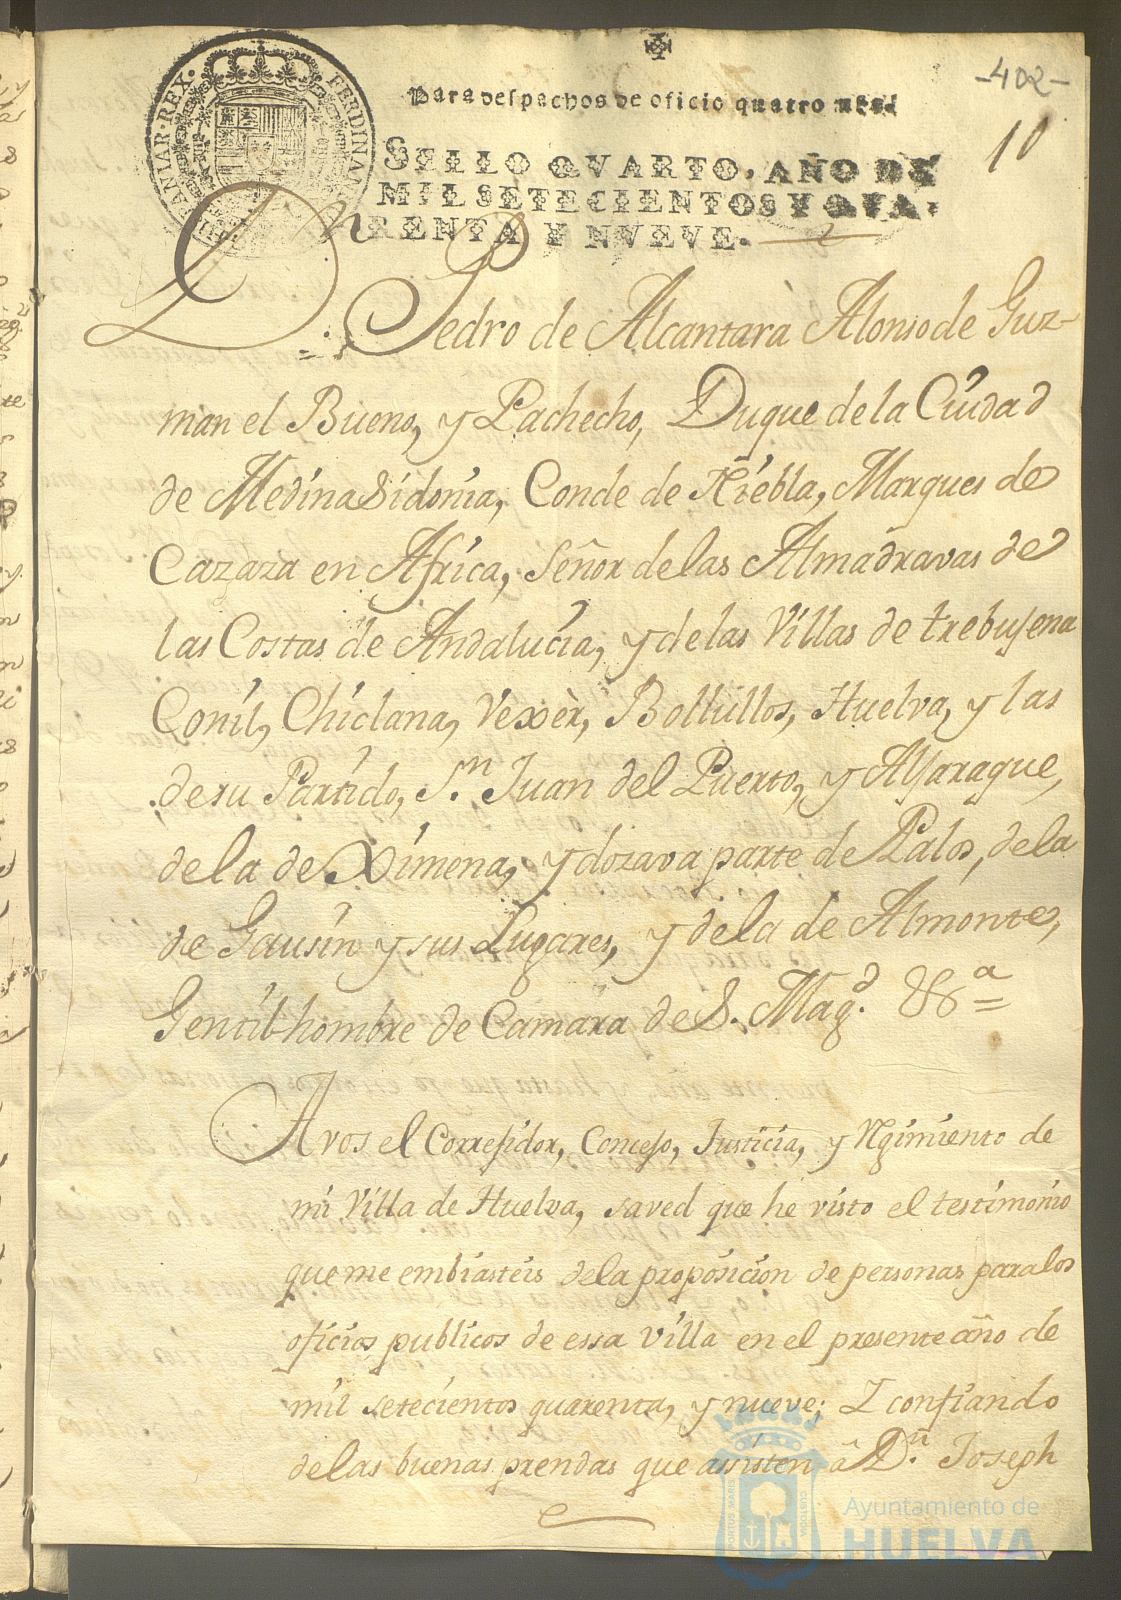 -402-
10
Para despachos de oficio quatro mrs.
SELLO QVARTO, AÑO DE
MIL SETECIENTOS Y QVA-
RENTA Y NVEVE.
FERDINAN
ANIAR·REX·
Dn Pedro de Alcantarà Alonso de Guz-
man el Bueno, y Pachecho, Duque de la Ciudad
de Medina Sidonia, Conde de Niebla, Marques de
Cazaza en Africa, Señor de las Almadravas de
las Costas de Andalucia, y de las Villas de trebujena
Conil, Chiclana, Vexèr, Bollullos, Huelva, y las
de su Partido, Sn. Juan del Puerto, y Alfaraque,
de la de Ximena, y dozava parte de Palos, de la
de Gausin y sus Lugares, y de la de Almonte,
Gentilhombre de Camara de S. Magd. &a =
A vos el Correjidor, Concejo, Justicia, y Rejimiento de
mi Villa de Huelva, saved que he visto el testimonio
que me embiasteis de la proposicion de personas para los
oficios publicos de essa Villa en el presente año de
mil setecientos quarenta, y nueve; I confiando
de las buenas prendas que assisten â Dn. Joseph
PORTUS MARIS
CUSTODIA
Ayuntamiento de
HUELVA